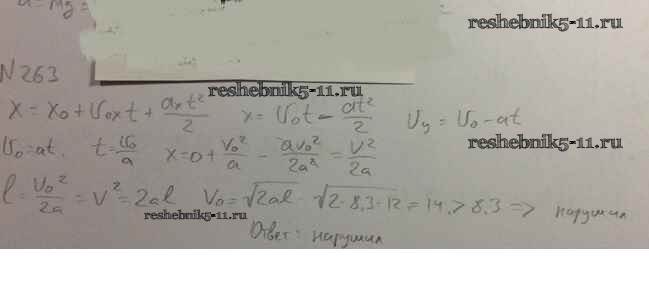 reshebnik5-11.ru
N 263
reshebnik5-11.ru
x = x₀ + υ₀ₓt + aₓt²/2   x = υ₀t - at²/2   υy = υ₀ - at
υ₀ = at. t = υ₀/a   x = 0 + υ₀²/a - aυ₀²/2a² = υ²/2a
l = υ₀²/2a = υ² = 2al   υ₀ = √2al · √2·8,3·12 = 14, > 8,3 => нарушил
reshebnik5-11.ru
Ответ: нарушил